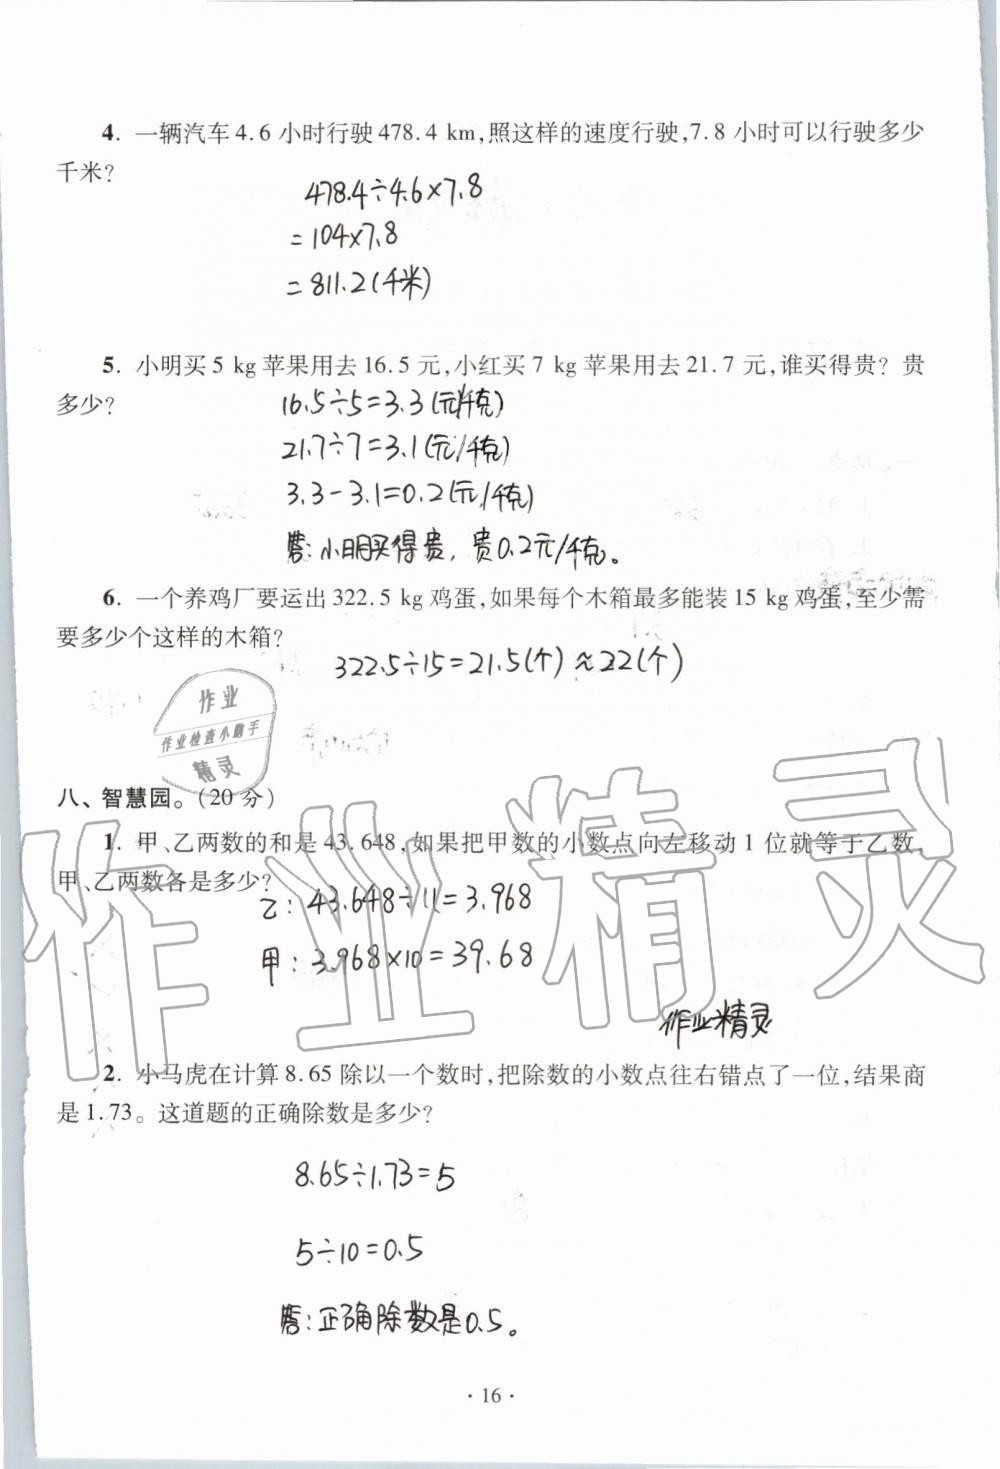 4. 一辆汽车4.6小时行驶478.4 km,照这样的速度行驶,7.8小时可以行驶多少
千米?
478.4÷4.6×7.8
=104×7.8
=811.2(千米)
5. 小明买5 kg苹果用去16.5元,小红买7 kg苹果用去21.7元,谁买得贵? 贵
多少?
16.5÷5=3.3(元/千克)
21.7÷7=3.1(元/千克)
3.3-3.1=0.2(元/千克)
答:小明买得贵,贵0.2元/千克。
6. 一个养鸡厂要运出322.5 kg鸡蛋,如果每个木箱最多能装15 kg鸡蛋,至少需
要多少个这样的木箱?
322.5÷15=21.5(个)≈22(个)
作业
作业检查小助手
精灵
八、智慧园。(20分)
1. 甲、乙两数的和是43.648,如果把甲数的小数点向左移动1位就等于乙数,
甲、乙两数各是多少?
乙: 43.648÷11=3.968
甲: 3.968×10=39.68
作业精灵
作业精灵
2. 小马虎在计算8.65除以一个数时,把除数的小数点往右错点了一位,结果商
是1.73。这道题的正确除数是多少?
8.65÷1.73=5
5÷10=0.5
答:正确除数是0.5。
·16·